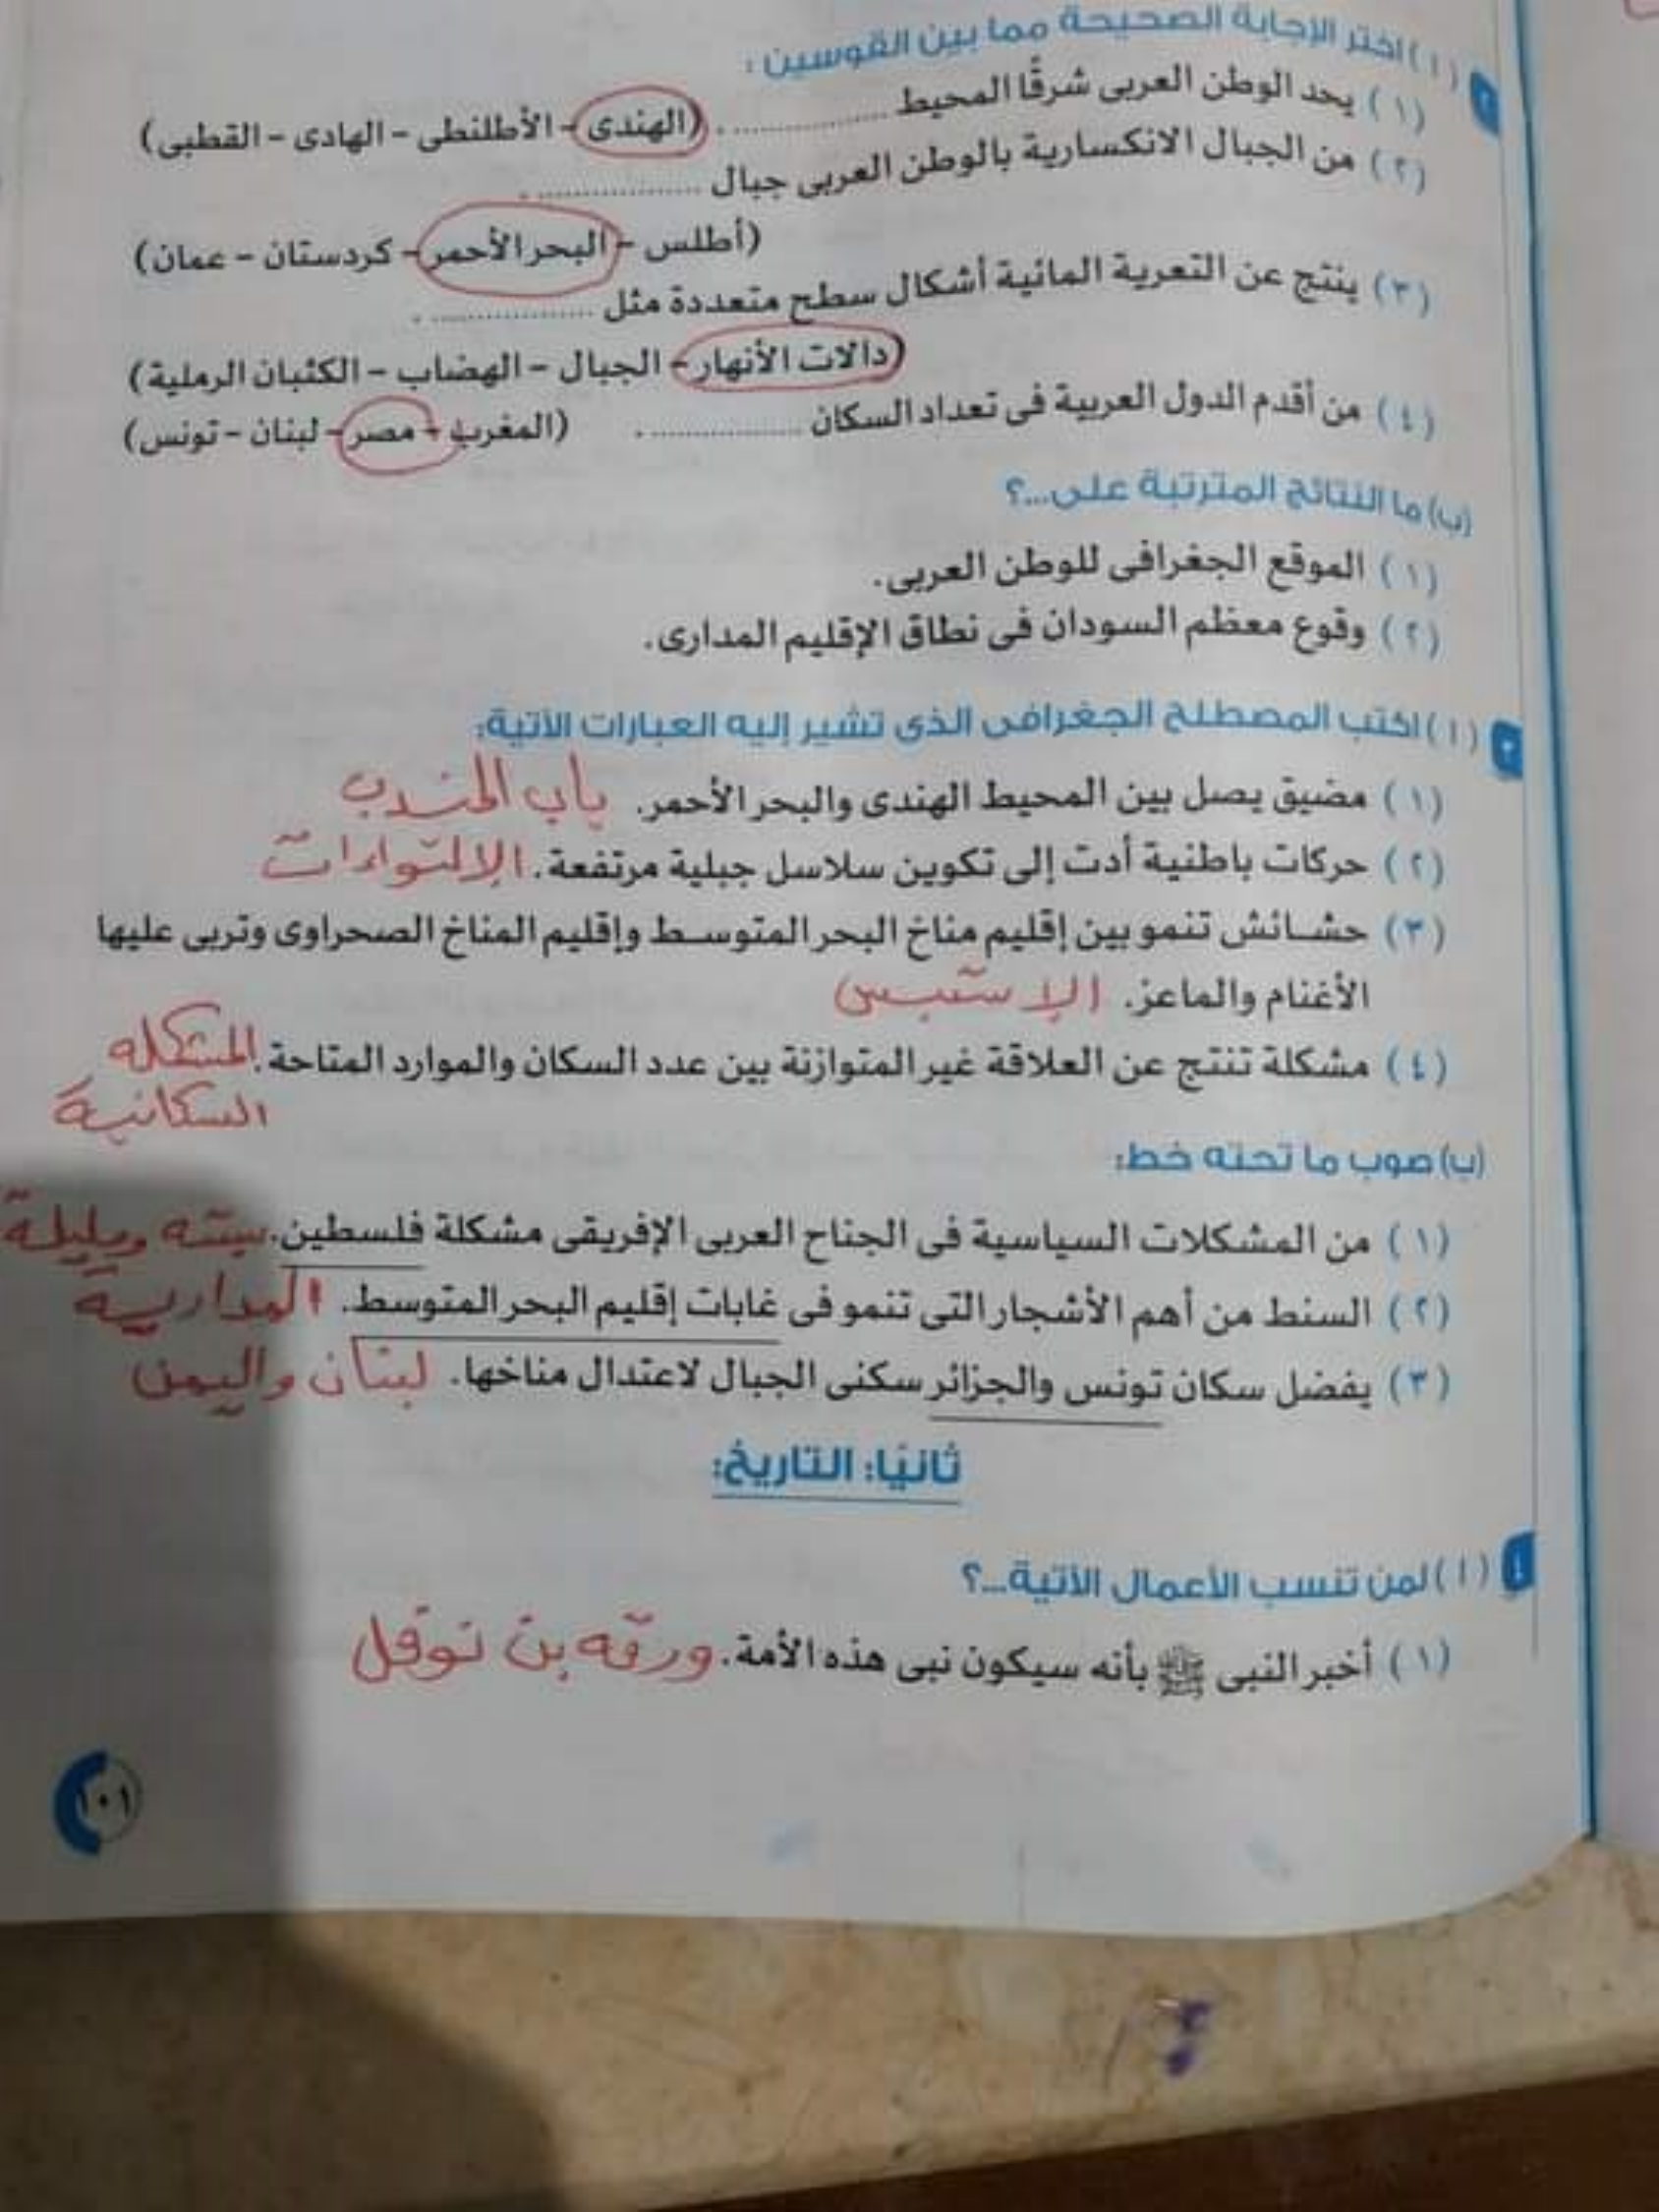 ٢ (أ) اختر الإجابة الصحيحة مما بين القوسين :
(١) يحد الوطن العربى شرقًا المحيط .................. . (الهندى - الأطلنطى - الهادى - القطبى)
(٢) من الجبال الانكسارية بالوطن العربى جبال .................. .
(أطلس - البحر الأحمر - كردستان - عمان)
(٣) ينتج عن التعرية المائية أشكال سطح متعددة مثل .................. .
(دالات الأنهار - الجبال - الهضاب - الكثبان الرملية)
(٤) من أقدم الدول العربية فى تعداد السكان .................. . (المغرب - مصر - لبنان - تونس)
(ب) ما النتائج المترتبة على...؟
(١) الموقع الجغرافى للوطن العربى.
(٢) وقوع معظم السودان فى نطاق الإقليم المدارى.
٣ (أ) اكتب المصطلح الجغرافى الذى تشير إليه العبارات الآتية:
(١) مضيق يصل بين المحيط الهندى والبحر الأحمر. باب المندب
(٢) حركات باطنية أدت إلى تكوين سلاسل جبلية مرتفعة. الإلتواءات
(٣) حشائش تنمو بين إقليم مناخ البحر المتوسط وإقليم المناخ الصحراوى وتربى عليها
الأغنام والماعز. الإستبس
(٤) مشكلة تنتج عن العلاقة غير المتوازنة بين عدد السكان والموارد المتاحة. المشكله
السكانية
(ب) صوب ما تحته خط:
(١) من المشكلات السياسية فى الجناح العربى الإفريقى مشكلة فلسطين. سبته ومليلة
(٢) السنط من أهم الأشجار التى تنمو فى غابات إقليم البحر المتوسط. المدارية
(٣) يفضل سكان تونس والجزائر سكنى الجبال لاعتدال مناخها. لبنان واليمن
ثانيًا: التاريخ:
٤ (أ) لمن تنسب الأعمال الآتية...؟
(١) أخبر النبى ﷺ بأنه سيكون نبى هذه الأمة. ورقه بن نوفل
١٠١